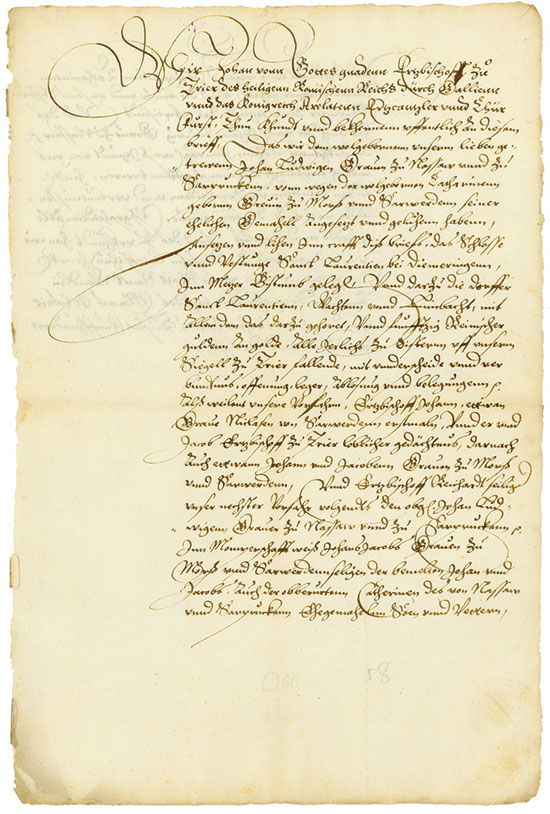 Wir Johan vonn Gottes gnadenn Ertzbischoff zů
Trier des heiligenn Romischenn Reichs dürch Gallienn
vnnd das Königreich Arelatenn Ertzcanntzler vnnd Chür
Fürst, Thůn khündt vnnd bekhennenn offentlich an diesem
brieff, Das wir dem wolgebornnenn vnserm lieben ge-
trewenn Johan Ludwigen Grauen zu Nassaw vnnd zu
Sarprucken, vonn wegen der wolgebornen Catharinenn
geborne Greuin zu Mörß vnnd Sarwerdenn, seiner
ehelichen Gemahell angesetzt vnnd geluhenn habenn,
Ansetzen vnnd lihen Inn crafft diß briefs, das Schlosse
vnnd Vestunge Sanct Laurentien bei Diemeringenn,
Inn Metzer Bistumb gelegen, Vnnd darzu die dorffer
Sanct Laurentienn, Wachtenn vnnd Hinbacht, mit
allen dem das darzu gehoret, Vnnd funfftzig Reinischer
gulden an golde, alle Jerlichs zu Cisternn vff vnserm
Siegell zu Trier fallende, mit vnderscheide vnnd ver
bundtnus, offnung, leger, ablosung vnnd belegungenn
Alß weilent vnsere Vorfahrn, Ertzbischoff Johann, ettwan
Graue Niclasen von Sarwerdenn erstmaln, Vnnd er vnd
Jacob Ertzbischoff zu Trier loblicher gedächtnus, darnach
Auch ettwann Johann vnd Jacobenn Grauen zu Mörß
vnnd Sarwerdenn, Vnnd Ertzbischoff Reichardt selige
vnser nehster Vorfahr volgendts den obg. Johan Lud-
wigenn Grauen zu Nassaw vnnd zu Sarpruckenn
Inn Momperschafft weiß Johans Jacobs Grauen zu
Mörß vnd Sarwerdenn seligen der bemelten Johan vnnd
Jacobs, Auch der obberurtenn Catherinen des von Nassaw
vnnd Sarpruckenn Ehegemaheln Söen vnnd Vettern,
066 18